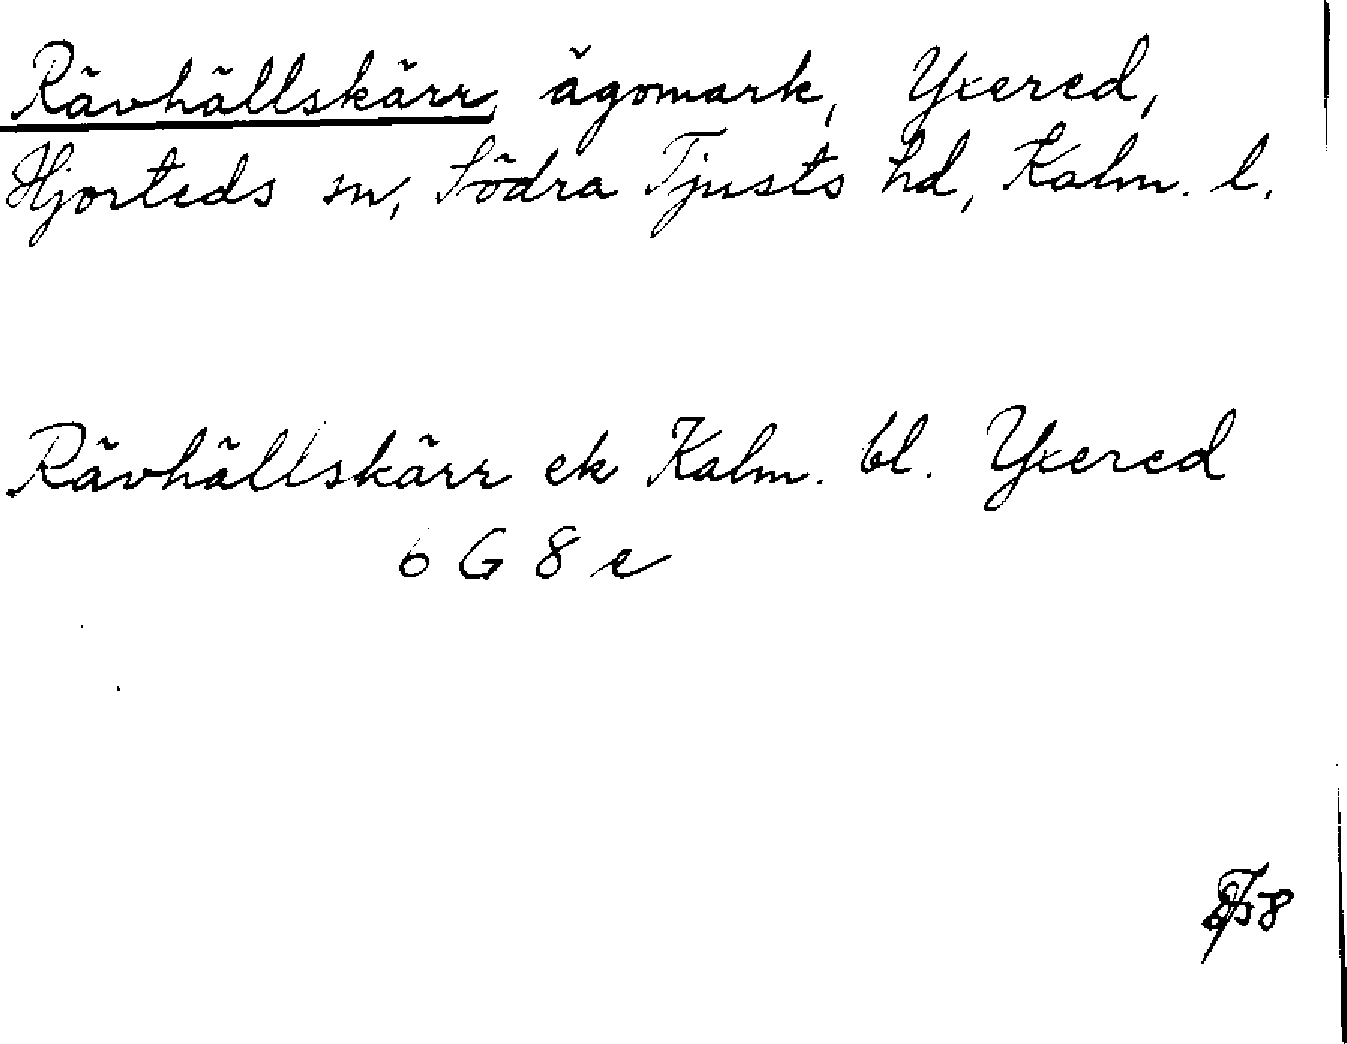 Rävhällskärr, ägomark, Yxered,
Hjorteds sn, Södra Tjusts hd, Kalm. l.
Rävhällskärr ek Kalm. bl. Yxered
6 G 8 e